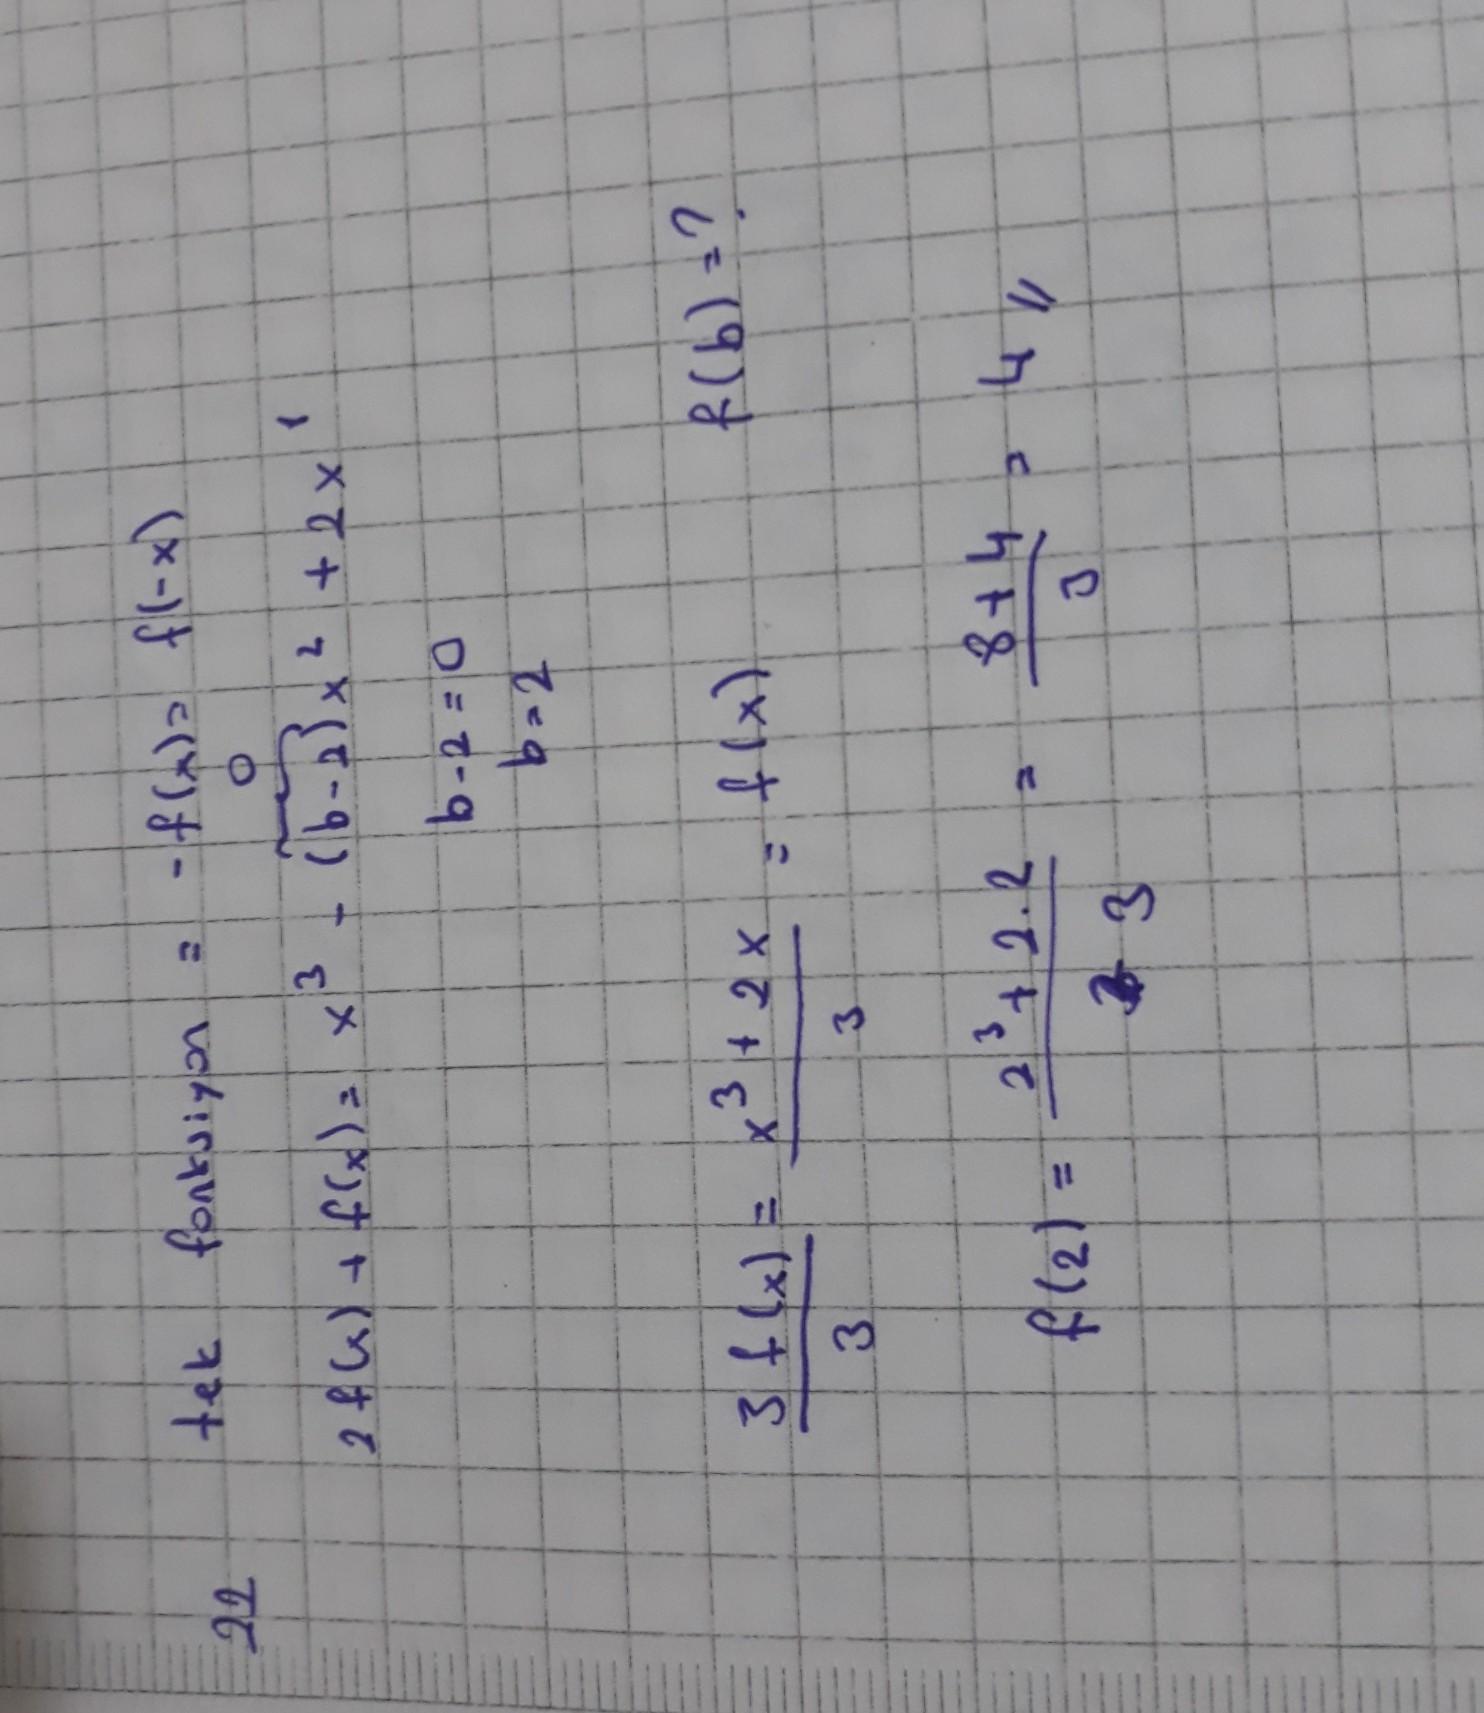 22
tek fonksiyon = -f(x) = f(-x)
0
2f(x) + f(x) = x³ - (b-2)x² + 2x¹
b-2=0
b=2
f(b)=?
3f(x)/3 = x³+2x/3 = f(x)
f(2) = 2³+2.2/3 = 8+4/3 = 4